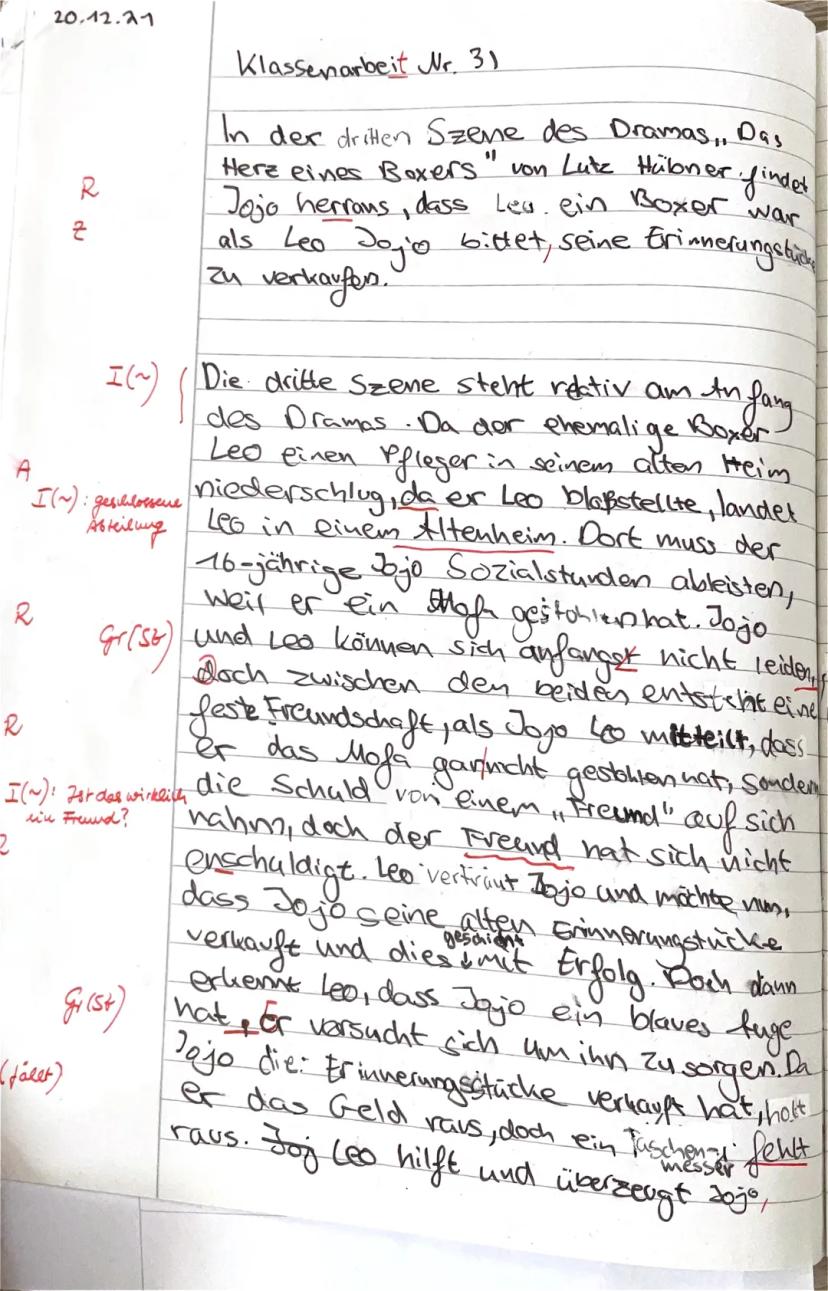 20.12.21
Klassenarbeit Nr. 3)
In der dritten Szene des Dramas „Das
Herz eines Boxers" von Lutz Hübner findet
R
Jojo herraus, dass Leo ein Boxer war
Z
als Leo Jojo bittet, seine Erinnerungstücke
zu verkaufen.
I(~)
Die dritte Szene steht relativ am Anfang
des Dramas. Da der ehemalige Boxer
Leo einen Pfleger in seinem alten Heim
A
niederschlug, da er Leo bloßstellte, landet
I(~): geschlossene Abteilung
Leo in einem Altenheim. Dort muss der
16-jährige Jojo Sozialstunden ableisten,
weil er ein Mofa gestohlen hat. Jojo
R
Gr(St)
und Leo können sich anfangst nicht leiden,
doch zwischen den beiden entsteht eine
feste Freundschaft, als Jojo Leo mitteilt, dass
R
er das Mofa garnicht gestohlen hat, sondern
I(~): Ist das wirklich ein Freund?
die Schuld von einem „Freund" auf sich
nahm, doch der Freund hat sich nicht
enschuldigt. Leo vertraut Jojo und möchte nun,
dass Jojo seine alten Erinnerungstücke
verkauft und dies geschieht mit Erfolg. Doch dann
erkennt Leo, dass Jojo ein blaues Auge
Gr(St)
hat, Er versucht sich um ihn zu sorgen. Da
Jojo die Erinnerungsstücke verkauft hat, holt
(fällt)
er das Geld raus, doch ein Taschenmesser fehlt
raus. Joj Leo hilft und überzeugt Jojo,